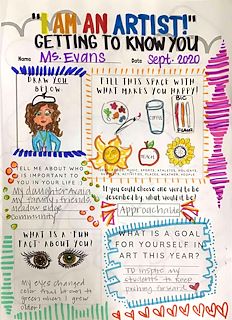 "I AM AN ARTIST!"
GETTING TO KNOW YOU
Name Ms. Evans Date Sept. 2020
DRAW YOU
BELOW
FILL THIS SPACE WITH
WHAT MAKES YOU HAPPY!
BIG
TEACH
TELL ME ABOUT WHO
IS IMPORTANT TO
YOU IN YOUR LIFE
My daughter Avah
my family, friends
meadow edge
community
If you could choose one word to be
described by, what would it be?
Approachable
WHAT IS A "FUN
FACT" ABOUT YOU?
My eyes changed
color from brown to
green when I grew
older!
WHAT IS A GOAL
FOR YOURSELF IN
ART THIS YEAR?
To inspire my
students to keep
pushing forward